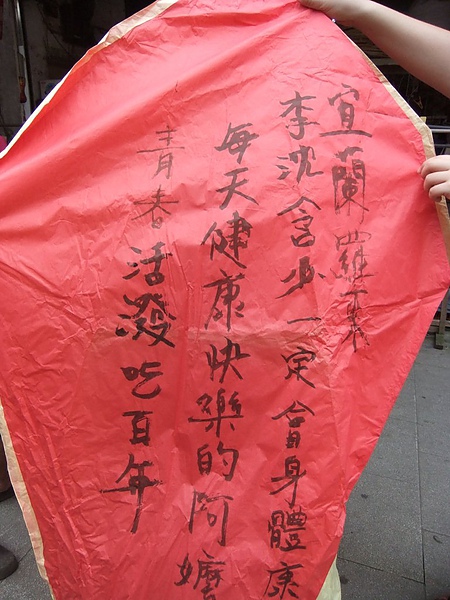 宜蘭羅東
李沈含少一定會身體康
每天健康快樂的阿嬤
青春活潑吃百年